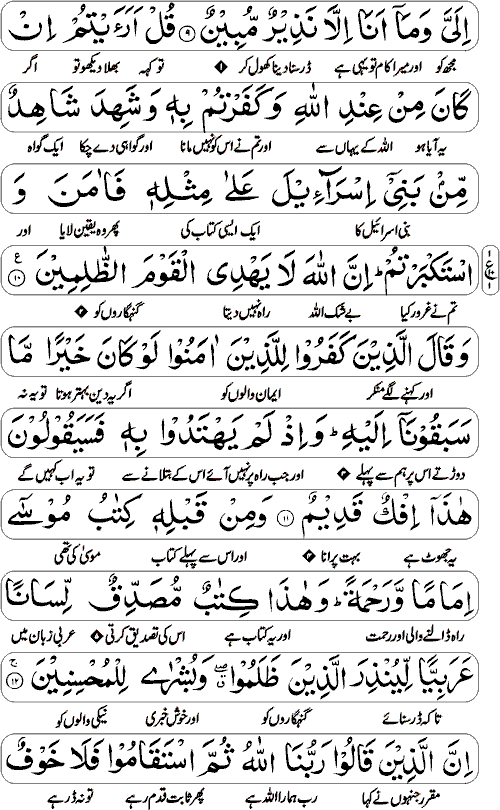 اِلَىَّ وَمَآ اَنَا اِلَّا نَذِيْرٌ مُّبِيْنٌ ۹ قُلْ اَرَءَيْتُمْ اِنْ
مجھ کو اور میرا کام تو یہی ہے ڈر سنا دینا کھول کر تو کہہ بھلا دیکھو تو اگر
كَانَ مِنْ عِنْدِ اللّٰهِ وَكَفَرْتُمْ بِهٖ وَشَهِدَ شَاهِدٌ
یہ آیا ہو اللہ کے یہاں سے اور تم نے اس کو نہیں مانا اور گواہی دے چکا ایک گواہ
مِّنْ بَنِىْٓ اِسْرَآءِيْلَ عَلٰى مِثْلِهٖ فَاٰمَنَ وَ
بنی اسرائیل کا ایک ایسی کتاب کی پھر وہ یقین لایا اور
اسْتَكْبَرْتُمْ ؕ اِنَّ اللّٰهَ لَا يَهْدِى الْقَوْمَ الظّٰلِمِيْنَ ۱۰
تم نے غرور کیا بے شک اللہ راہ نہیں دیتا گنہگاروں کو
وَقَالَ الَّذِيْنَ كَفَرُوْا لِلَّذِيْنَ اٰمَنُوْا لَوْ كَانَ خَيْرًا مَّا
اور کہنے لگے منکر ایمان والوں کو اگر یہ دین بہتر ہوتا تو یہ نہ
سَبَقُوْنَآ اِلَيْهِ ؕ وَاِذْ لَمْ يَهْتَدُوْا بِهٖ فَسَيَقُوْلُوْنَ
دوڑتے اس پر ہم سے پہلے اور جب راہ پر نہیں آئے اس کے بتلانے سے تو یہ اب کہیں گے
هٰذَآ اِفْكٌ قَدِيْمٌ ۱۱ وَمِنْ قَبْلِهٖ كِتٰبُ مُوْسٰٓى
یہ جھوٹ ہے بہت پرانا اور اس سے پہلے کتاب موسیٰ کی تھی
اِمَامًا وَّرَحْمَةً ؕ وَهٰذَا كِتٰبٌ مُّصَدِّقٌ لِّسَانًا
راہ ڈالنے والی اور رحمت اور یہ کتاب ہے اس کی تصدیق کرتی عربی زبان میں
عَرَبِيًّا لِّيُنْذِرَ الَّذِيْنَ ظَلَمُوْا ۖ وَبُشْرٰى لِلْمُحْسِنِيْنَ ۱۲
تاکہ ڈر سنائے گنہگاروں کو اور خوش خبری نیکی والوں کو
اِنَّ الَّذِيْنَ قَالُوْا رَبُّنَا اللّٰهُ ثُمَّ اسْتَقَامُوْا فَلَا خَوْفٌ
مقرر جنہوں نے کہا رب ہمارا اللہ ہے پھر ثابت قدم رہے تو نہ ڈر ہے